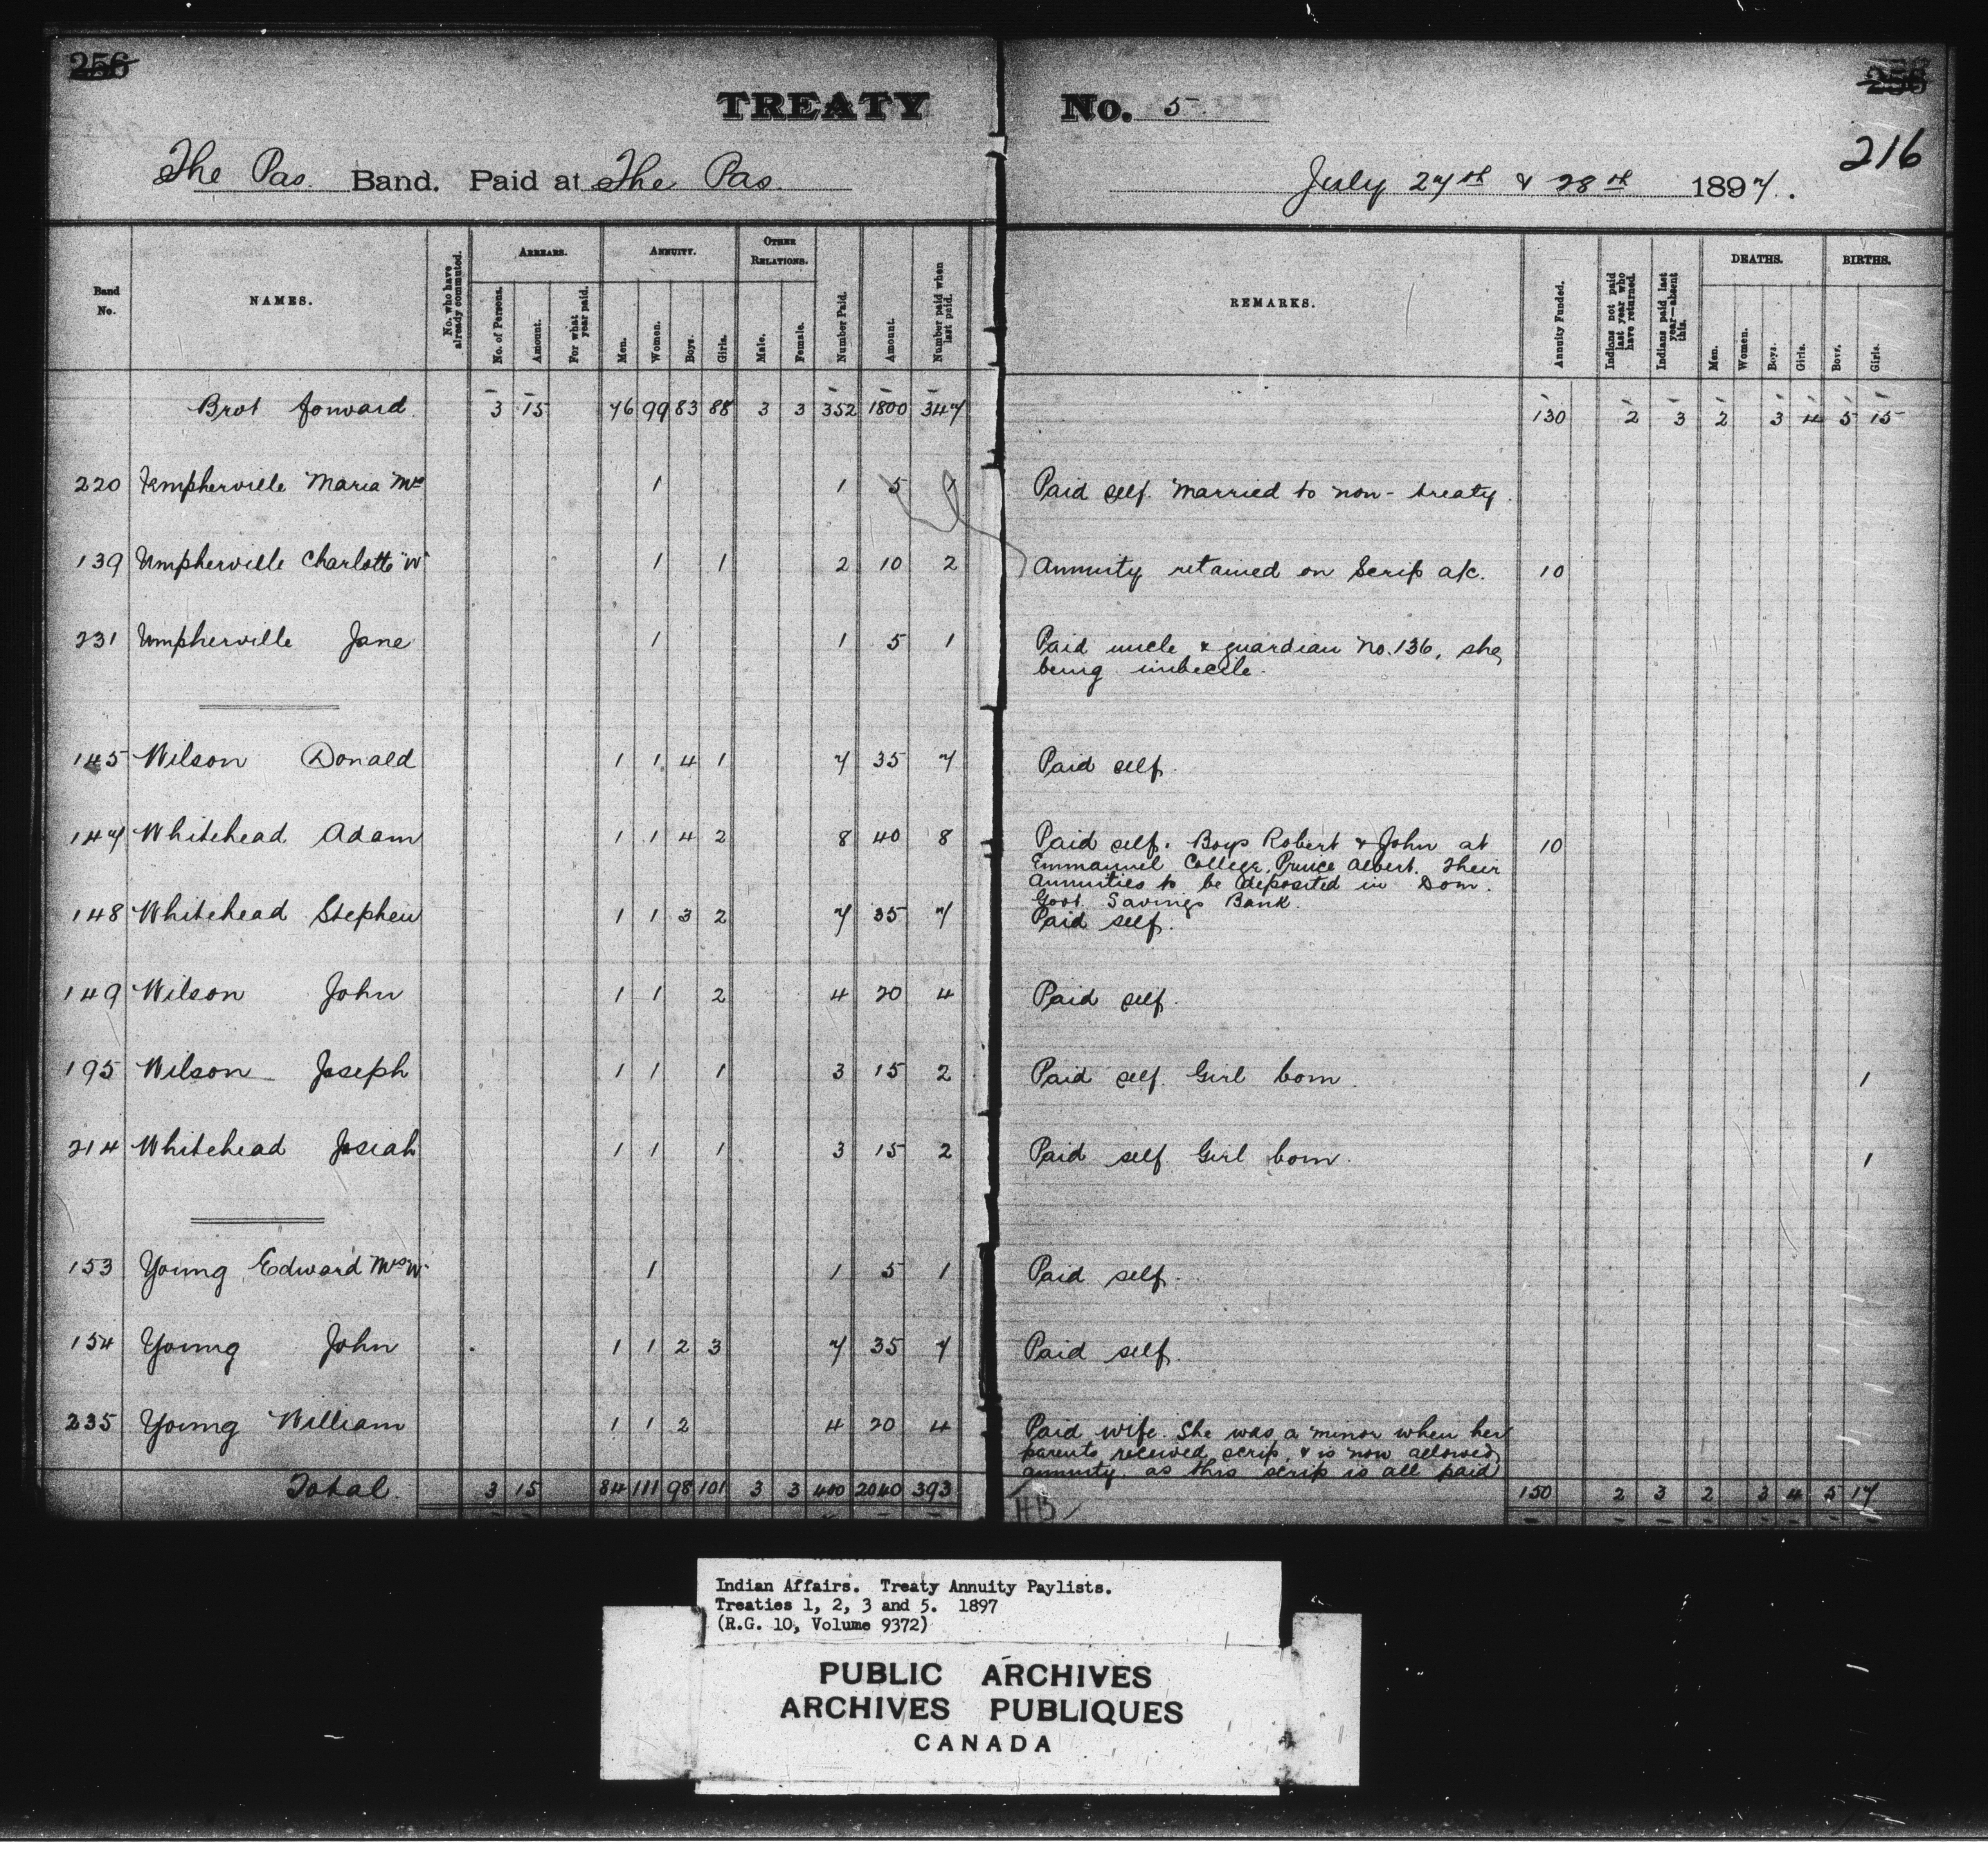 256
TREATY No. 5
256
216
The Pas Band. Paid at The Pas.
July 27th & 28th 1897.
Band No.
NAMES.
No. who have already commuted.
ARREARS.
No. of Persons.
Amount.
For what year paid.
ANNUITY.
Men.
Women.
Boys.
Girls.
OTHER RELATIONS.
Male.
Female.
Number Paid.
Amount.
Number paid when last paid.
REMARKS.
Annuity Funded.
Indians not paid last year who have returned.
Indians paid last year—absent this.
DEATHS.
Men.
Women.
Boys.
Girls.
BIRTHS.
Boys.
Girls.
Brot forward 3 15 76 99 83 88 3 3 352 1800 347 130 2 3 2 3 4 5 15
220 Umpherville Maria Mrs 1 1 5 1 Paid self. Married to non-treaty.
139 Umpherville Charlotte "W" 1 1 2 10 2 Annuity retained on Scrip a/c. 10
231 Umpherville Jane 1 1 5 1 Paid uncle & guardian No. 136, she
being imbecile.
145 Wilson Donald 1 1 4 1 7 35 7 Paid self.
147 Whitehead Adam 1 1 4 2 8 40 8 Paid self. Boys Robert & John at 10
Emmanuel College, Prince Albert. Their
annuities to be deposited in Dom.
Govt. Savings Bank.
148 Whitehead Stephen 1 1 3 2 7 35 7 Paid self.
149 Wilson John 1 1 2 4 20 4 Paid self.
195 Wilson Joseph 1 1 1 3 15 2 Paid self. Girl born. 1
214 Whitehead Josiah 1 1 1 3 15 2 Paid self. Girl born. 1
153 Young Edward Mrs W 1 1 5 1 Paid self.
154 Young John 1 1 2 3 7 35 7 Paid self.
235 Young William 1 1 2 4 20 4 Paid wife. She was a minor when her
parents received scrip, & is now allowed
annuity as this scrip is all paid
Total. 3 15 84 111 98 101 3 3 400 2040 393 150 2 3 2 3 4 5 17
HB
Indian Affairs. Treaty Annuity Paylists.
Treaties 1, 2, 3 and 5. 1897
(R.G. 10, Volume 9372)
PUBLIC ARCHIVES
ARCHIVES PUBLIQUES
CANADA